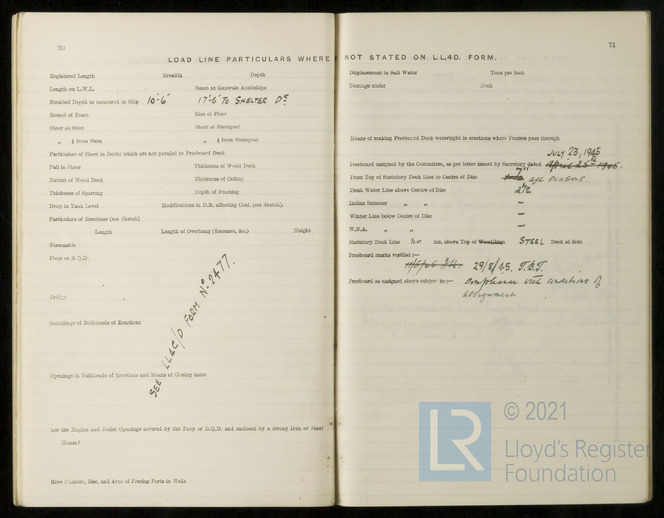 70
LOAD LINE PARTICULARS WHERE
Registered Length Breadth Depth
Length on L.W.L. Beam at Gunwale Amidships
Moulded Depth as measured in Ship 10'-6" 17'-6" TO SHELTER Dk
Round of Beam Rise of Floor
Sheer at Stem Sheer at Sternpost
„ ⅛ from Stem „ ⅛ from Sternpost
Particulars of Sheer in Decks which are not parallel to Freeboard Deck
Fall in Sheer Thickness of Wood Deck
Extent of Wood Deck Thickness of Ceiling
Thickness of Sparring Depth of Framing
Drop in Tank Level Modifications in D.B. affecting Coef. (see Sketch).
Particulars of Erections (see Sketch)
Length Length of Overhang (Recesses, &c.) Height
Forecastle
Poop or R.Q.D.
Bridge
SEE LL4C/D FORM No. 2477.
Scantlings of Bulkheads of Erections
Openings in Bulkheads of Erections and Means of Closing same
Are the Engine and Boiler Openings covered by the Poop or R.Q.D. and enclosed by a strong Iron or Steel
House?
Give Number, Size, and Area of Freeing Ports in Wells
71
NOT STATED ON LL.4D. FORM.
Displacement in Salt Water Tons per inch
Tonnage under Deck
Means of making Freeboard Deck watertight in erections where Frames pass through
JULY 23, 1945
Freeboard assigned by the Committee, as per letter issued by Secretary dated
From Top of Statutory Deck Line to Centre of Disc all seasons
Fresh Water Line above Centre of Disc 2½"
Indian Summer „ „ –
Winter Line below Centre of Disc –
W.N.A. „ „ –
Statutory Deck Line ins. above Top of STEEL Deck at Side
Freeboard marks verified :—
29/8/45. J.B.J.
Freeboard as assigned above subject to :— Compliance with conditions of
assignment
© 2021
LR
Lloyd's Register
Foundation